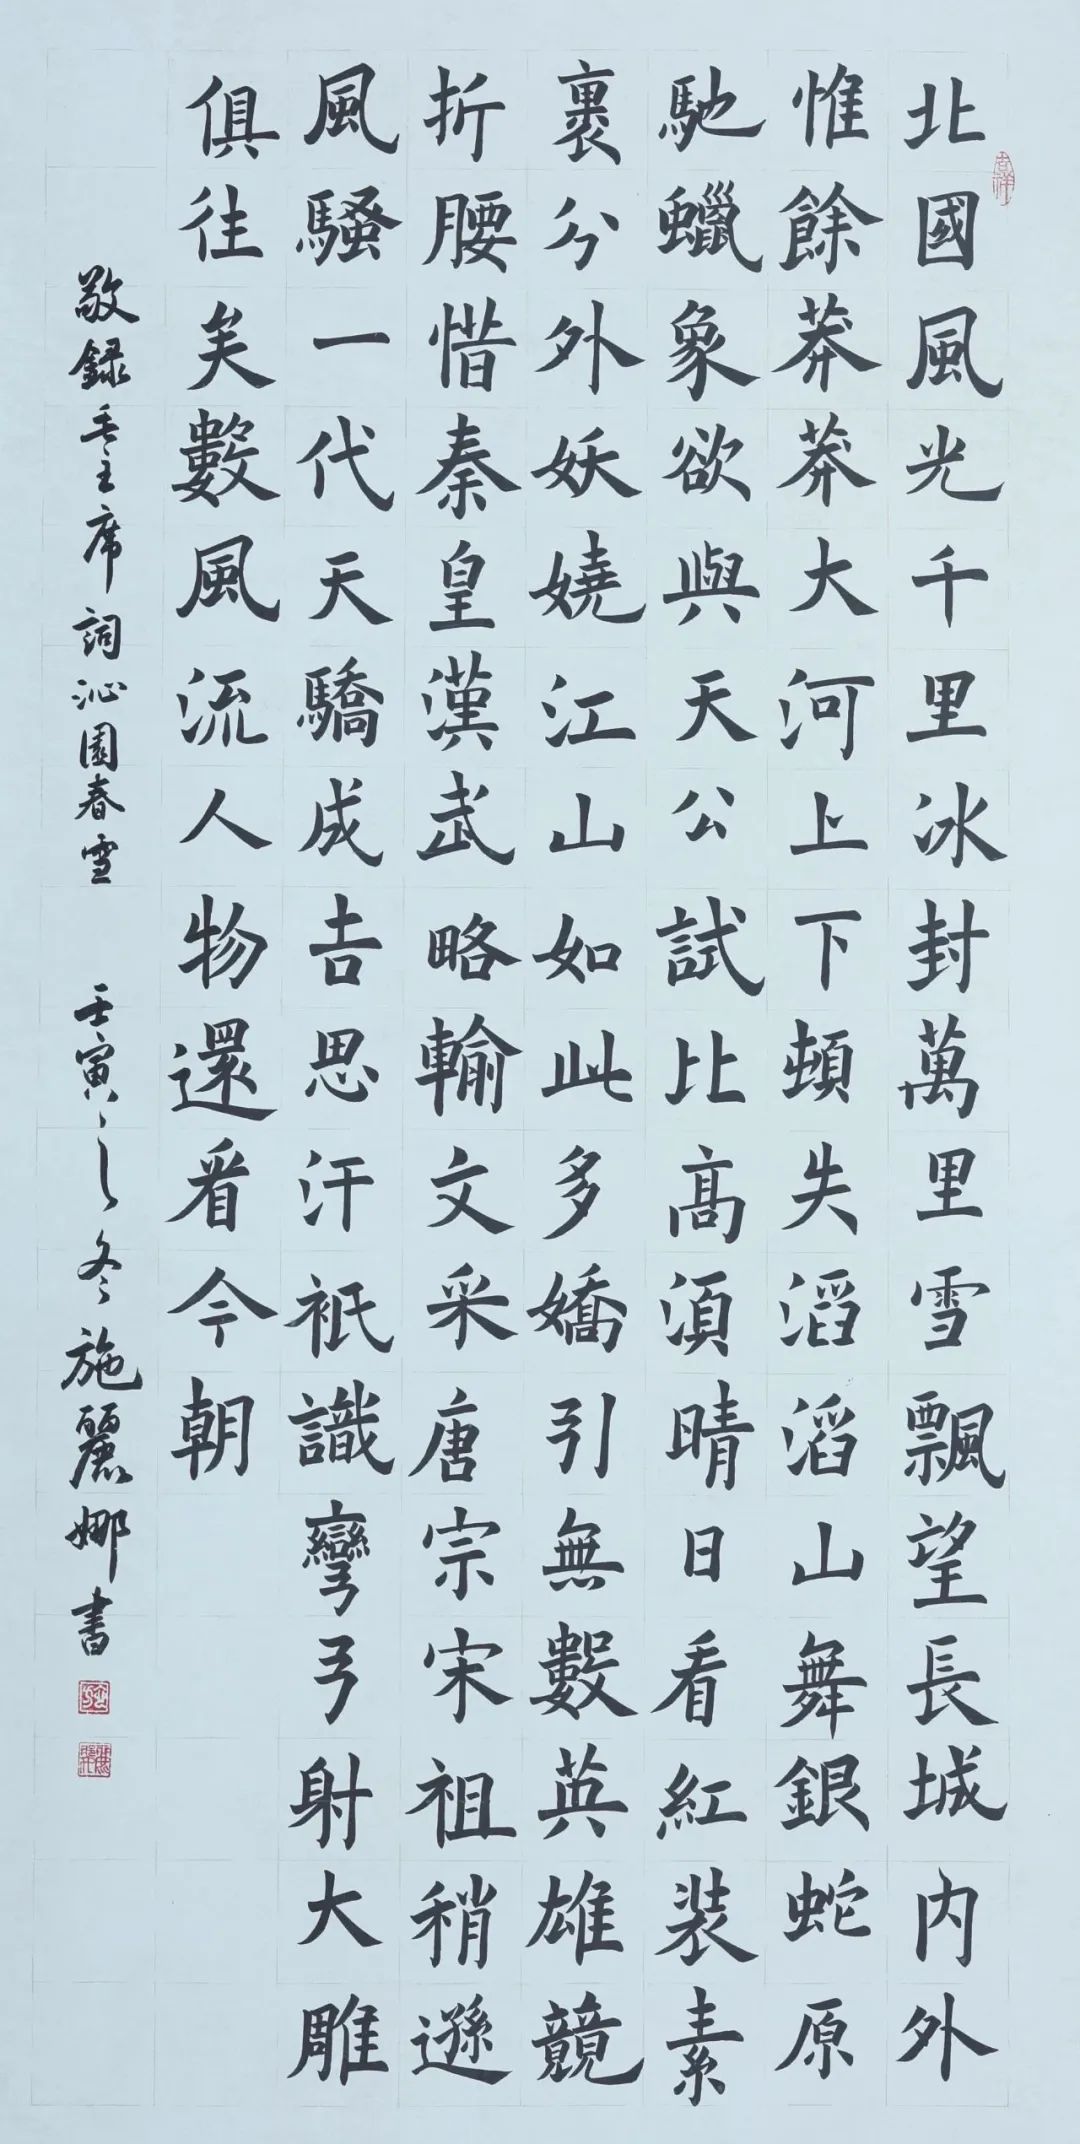 北國風光千里冰封萬里雪飄望長城内外
惟餘莽莽大河上下頓失滔滔山舞銀蛇原
馳蠟象欲與天公試比高湏晴日看紅装素
裹分外妖嬈江山如此多嬌引無數英雄競
折腰惜秦皇漢武略輸文采唐宗宋祖稍遜
風騷一代天驕成吉思汗衹識彎弓射大雕
俱往矣數風流人物還看今朝
敬録毛主席詞沁園春雪 壬寅之冬施麗娜書
吉祥